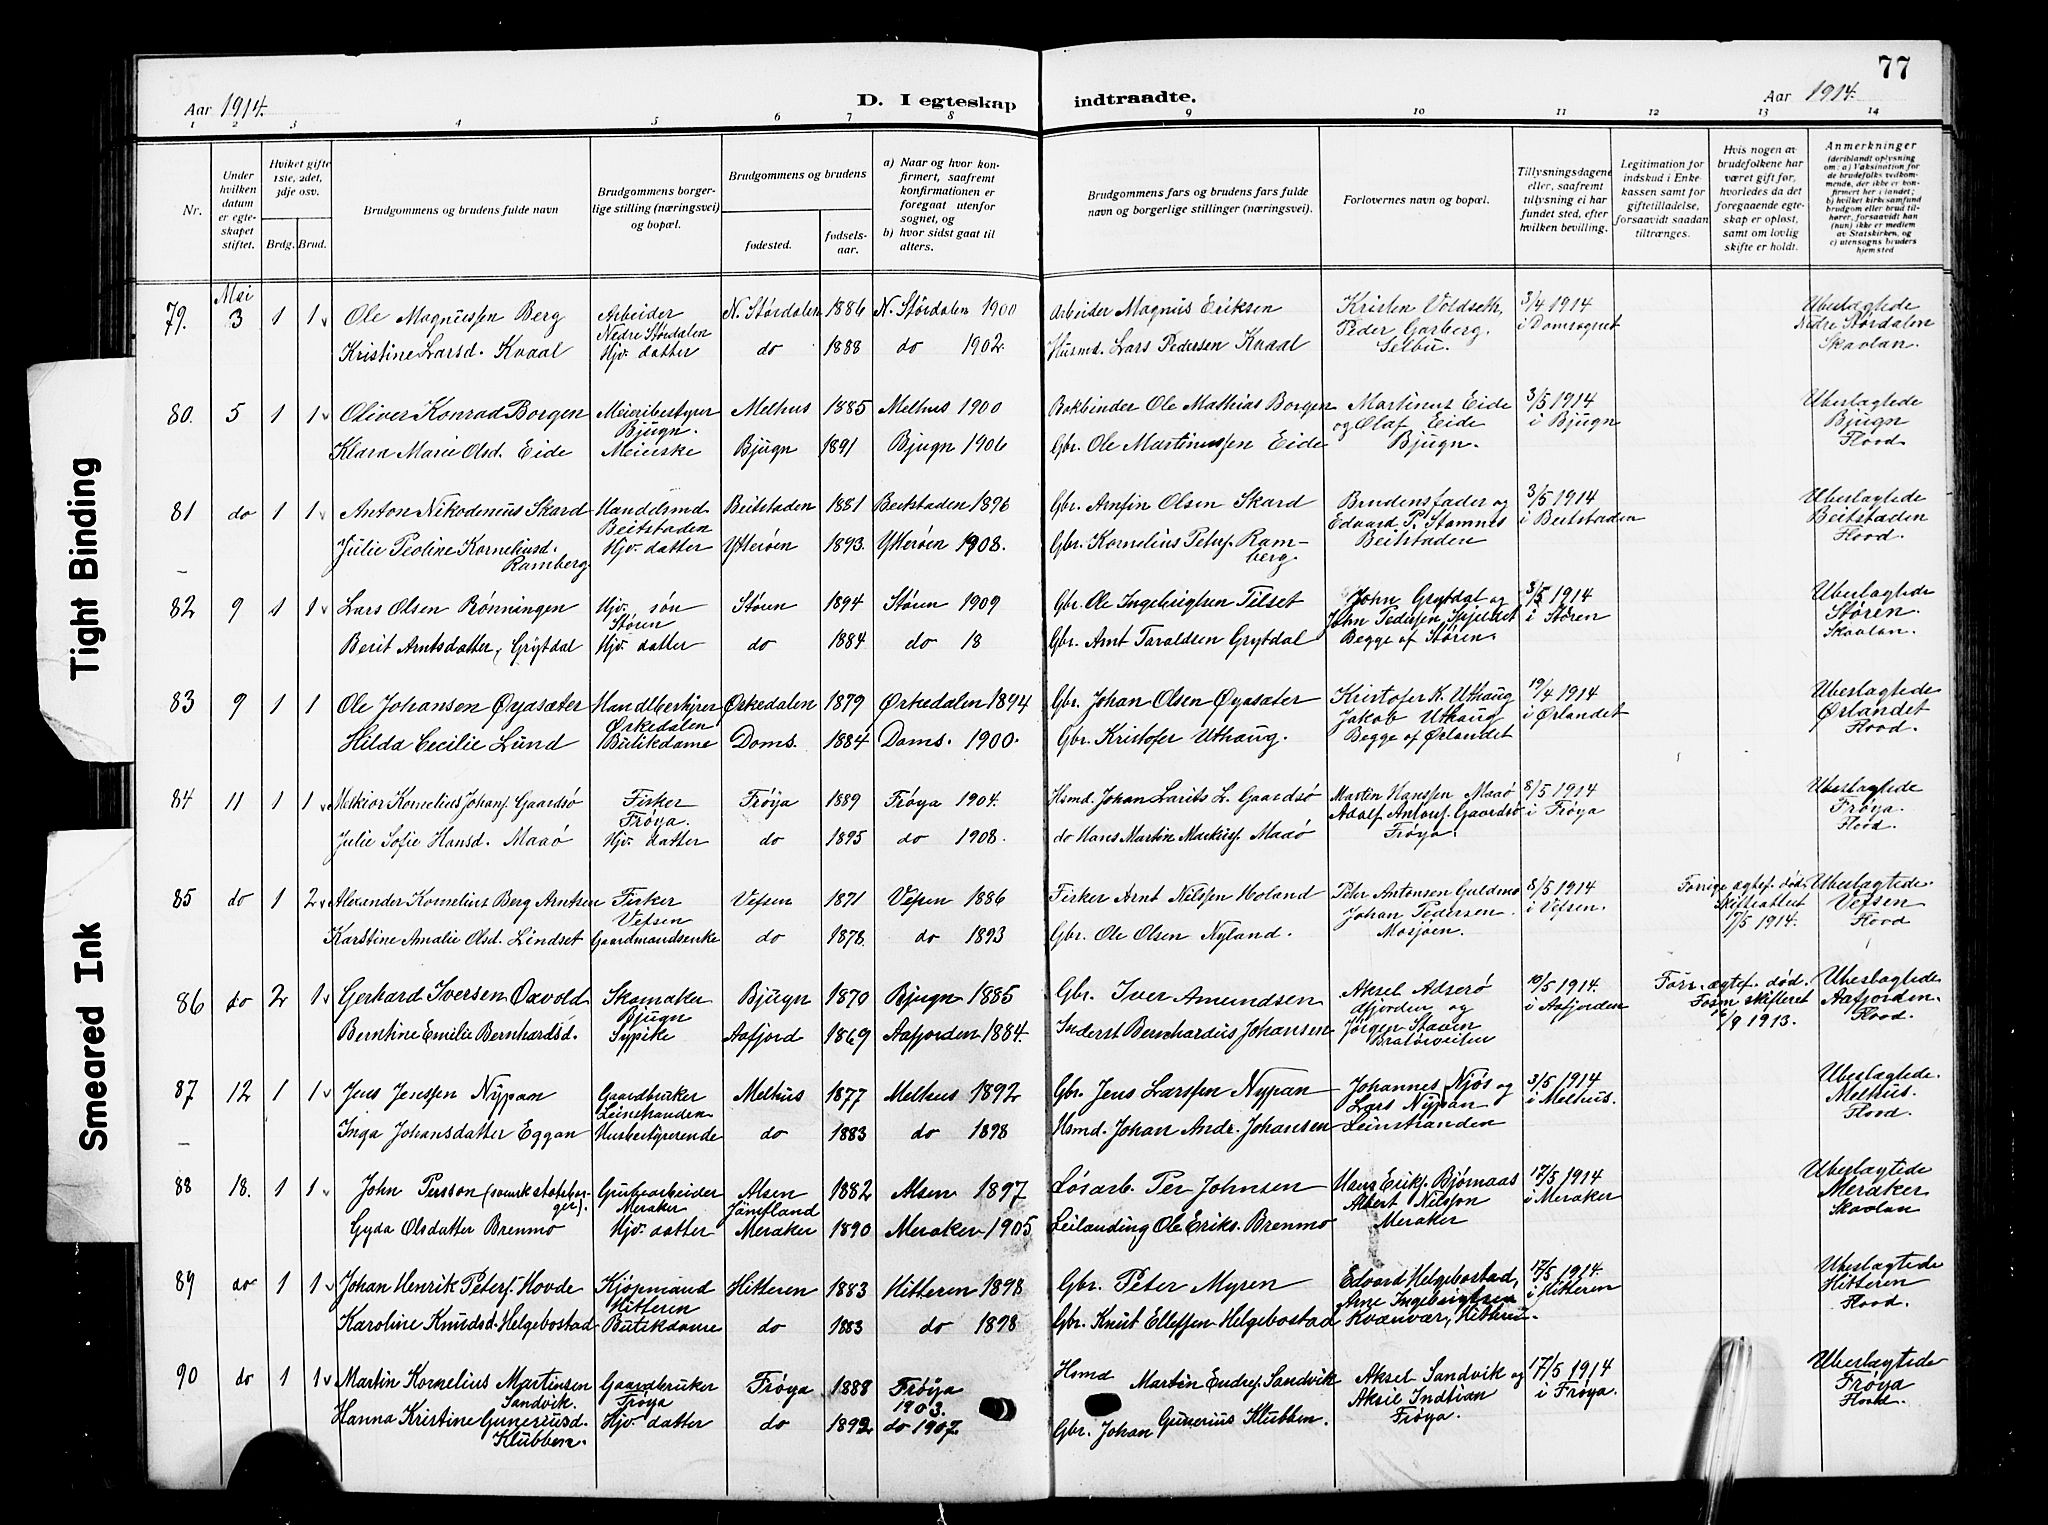 77
Aar 1914. D. I egteskap indtraadte. Aar 1914.
1 2 3 4 5 6 7 8 9 10 11 12 13 14
Nr.
Under hvilken datum er egteskapet stiftet.
Hvilket gifte 1ste, 2det, 3dje osv.
Brdg. Brud.
Brudgommens og brudens fulde navn
Brudgommens borgerlige stilling (næringsvei) og bopæl.
Brudgommens og brudens
fødested. fødselsaar.
a) Naar og hvor konfirmert, saafremt konfirmationen er foregaat utenfor sognet, og b) hvor sidst gaat til alters.
Brudgommens fars og brudens fars fulde navn og borgerlige stillinger (næringsvei).
Forlovernes navn og bopæl.
Tillysningsdagene eller, saafremt tillysning ei har fundet sted, efter hvilken bevilling.
Legitimation for indskud i Enkekassen samt for giftetilladelse, forsaavidt saadan tiltrænges.
Hvis nogen av brudefolkene har været gift før, hvorledes da det foregaaende egteskap er opløst, samt om lovlig skifte er holdt.
Anmerkninger (deriblandt oplysning om: a) Vaksination for de brudefolks vedkommende, der ikke er konfirmert her i landet; b) hvilket kirkesamfund brudgom eller brud tilhører, forsaavidt han (hun) ikke er medlem av Statskirken, og c) utensogns bruders hjemsted
Mai
79. 3 1 1 Ole Magnussen Berg Arbeider Nedre Størdalen N. Størdalen 1886 N. Størdalen 1900 Arbeider Magnus Eriksen Kristen Voldseth, Peder Garberg. Selbu. 3/4 1914 i Domsognet Uberlagtede Nedre Størdalen Skavlan.
Kristine Larsd. Kvaal Hjv. datter do 1888 do 1902. Husmd. Lars Pedersen Kvaal
80. 5 1 1 Oliver Konrad Borgen Meieribestyrer Bjugn. Melhus 1885 Melhus 1900 Bokbinder Ole Mathias Borgen Martinus Eide og Olaf Eide Bjugn. 3/5 1914 i Bjugn Uberlagtede Bjugn Flood
Klara Marie Olsd. Eide Meierske Bjugn 1891 Bjugn 1906 Gbr. Ole Martinussen Eide
81 do 1 1 Anton Nikodemus Skard Handelsmd Beitstaden Beitstaden 1881 Beitstaden 1896 Gbr. Arnfin Olsen Skard Brudens fader og Edvard P. Stamnes Beitstaden 3/5 1914 i Beitstaden Uberlagtede Beitstaden Flood.
Julie Peoline Korneliusd. Ramberg Hjv. datter Ytterøen 1893. Ytterøen 1908. Gbr. Kornelius Peters. Ramberg.
82 9 1 1 Lars Olsen Rønningen Hjv. søn Støren Støren 1894 Støren 1909 Gbr. Ole Ingebrigtsen Tilset John Grytdal og John Pedersen Spjeldet Begge af Støren. 3/5 1914 i Støren Uberlagtede Støren. Skavlan.
Berit Arntsdatter Grytdal Hjv. datter do 1884 do 18 Gbr. Arnt Taraldsen Grytdal
83 9 1 1 Ole Johansen Øyasæter Handlbestyrer Orkedalen Orkedalen 1879 Orkedalen 1894 Gbr. Johan Olsen Øyasæter Kristofer K. Uthaug Jakob Uthaug Begge af Ørlandet 19/4 1914 i Ørlandet Uberlagtede Ørlandet Flood.
Hilda Cecilie Lund Butikdame Doms. 1884 Doms. 1900. Gbr. Kristofer Uthaug.
84 11 1 1 Melkior Kornelius Johans. Gaardsø Fisker Frøya. Frøya 1889 Frøya 1904. Hsmd. Johan Larits L. Gaardsø Martin Hanssen Maaø Adolf Antons. Gaardsø Frøya. 8/5 1914 i Frøya Uberlagtede Frøya. Flood.
Julie Sofie Hansd. Maaø Hjv. datter do 1895 do 1908. do Hans Martin Markus. Maaø
85 do 1 2 Alexander Kornelius Berg Arntsen Fisker Vefsen Vefsen 1871 Vefsen 1886 Fisker Arnt Nilssen Holand Peter Antonsen Guldmo Johan Pedersen. Mosjøen. 8/5 1914 i Vefsen. Forrige ægtef. død. Skifteattest 7/5 1914. Uberlagtede. Vefsen Flood
Karstine Amalie Olsd. Lindset Gaardmandsenke do 1878. do 1893 Gbr. Ole Olsen Nyland.
86 do 2 1 Gerhard Iversen Oxvold Skomaker Bjugn Bjugn 1870 Bjugn 1885 Gbr. Iver Amundsen Aksel Adserø Afjorden og Jørgen Stavnn Bratørveiten 10/5 1914. i Aafjorden Forr. ægtef. død. Form skifteret /9 1913. Uberlagtede Aafjorden. Flood.
Berntine Emilie Bernhardsd. Sypike Aafjord 1869 Aafjorden 1884. Inderst Bernhardus Johansen
87 12 1 1 Jens Jenssen Nypan Gaardbruker Leinstranden Melhus 1877 Melhus 1892 Gbr. Jens Larssen Nypan Johannes Njøs og Lars Nypan Leinstranden 3/5 1914 i Melhus. Uberlagtede. Melhus. Flood.
Inga Johansdatter Eggan Husbestyrerende do 1883 do 1898 Hsmd. Johan Andr. Johansen
88 18. 1 1 John Persson (svensk statsborger). Grubearbeider Meraker Alsen Jämtland 1882 Alsen 1897 Løsarb. Per Johnsen Hans Eriks. Bjørnaas Albert Nilsson Meraker 17/5 1914 i Meraker Uberlagtede Meraker Skavlan
Gyda Olsdatter Brenmo Hjv. datter Meraker 1890 Meraker 1905 Leilænding Ole Eriks. Brenmo
89 do 1 1 Johan Henrik Peters. Hovde Kjøpmand Hitteren Hitteren 1883 Hitteren 1898 Gbr. Peter Myren Edvard Helgebostad, Arne Ingebrigtsen Kvænvær, Hitteren. 17/5 1914. i Hitteren Uberlagtede Hitteren Flood.
Karoline Knudsd. Helgebostad Butikdame do 1883 do 1898 Gbr. Knut Ellefsen Helgebostad
90 do 1 1 Martin Kornelius Martinsen Sandvik. Gaardbruker Frøya Frøya 1888 Frøya 1903. Hsmd Martin Endres. Sandvik Aksel Sandvik og Aksil Indtian Frøya. 17/5 1914 i Frøya. Uberlagtede Frøya Flood
Hanna Kristine Guneriusd. Klubben. Hjv. datter do 1892 do 1907. Gbr. Johan Gunerius Klubben.
Tight Binding
Smeared Ink